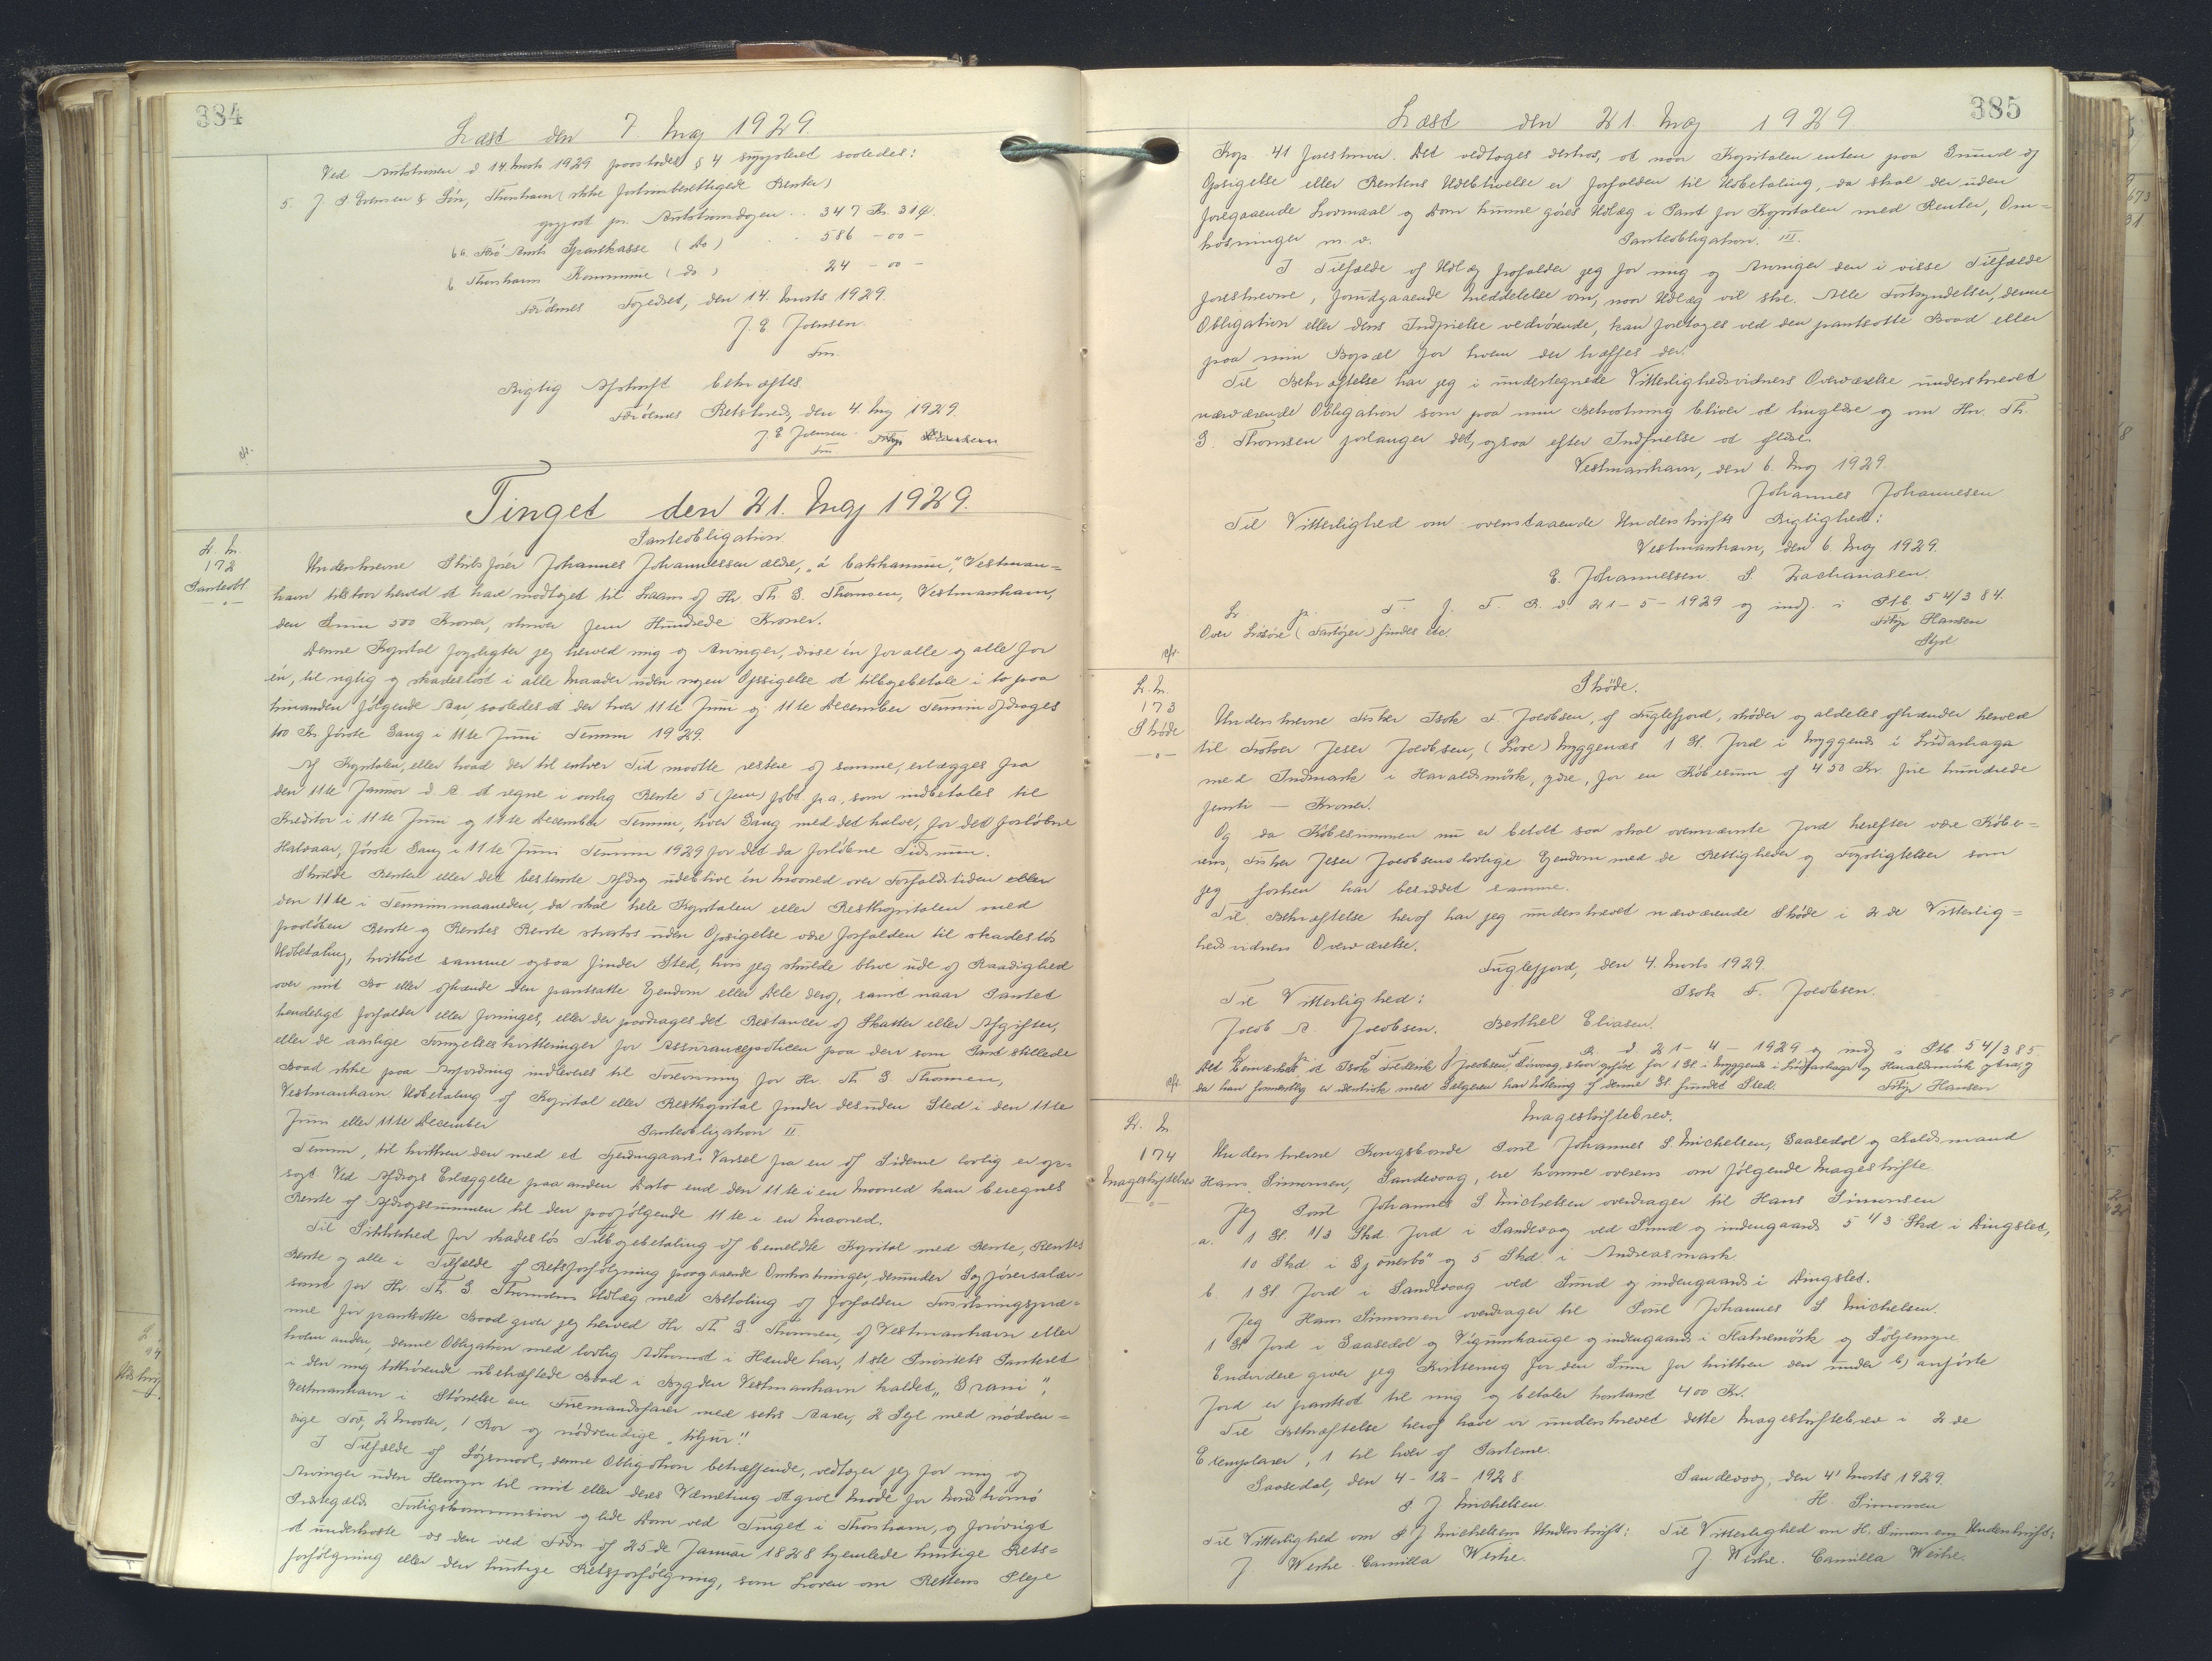 384
Læst den 7 Maj 1929.
Ved Auktionen d 14 Marts 1929 paastodes § 4 suppleret saaledes:
5. J. P. Evensen & Søn, Thorshavn (ikke fortrinsberettigede Renter)
opgjort pr. Auktionsdagen .. 347 Kr. 31 Ø.
6a. Færø Amts Sparekasse (do) .. 586 - 00 -
b. Thorshavns Kommune (do) .. 24 - 00 -
Færøernes Fogedret, den 14. Marts 1929.
J. E. Joensen.
Fm.
Rigtig Afskrift bekræftes.
Færøernes Retskreds, den 4. Maj 1929.
J E Joensen.
Fm.
Tinget den 21. Maj 1929.
L. N.
172
Panteobl.
Panteobligation.
Underskrevne Skibsfører Johannes Johannessen ældre, "á bakkanum", Vestman=
havn tilstaar herved at have modtaget til Laans af Hr. Th. G. Thomsen, Vestmanhavn,
den Sum 500 Kroner, skriver fem Hundrede Kroner.
Denne Kapital forpligter jeg herved mig og Arvinger, disse én for alle og alle for
én, til rigtig og skadesløst i alle Maader uden nogen Opsigelse at tilbagebetale i to paa
hinanden følgende Aar, saaledes at der hver 11te Juni og 11te December Termin afdrages
100 Kr første Gang i 11te Juni Termin 1929.
Af Kapitalen, eller hvad der til enhver Tid maatte restere af samme, erlægges fra
den 11te Januar d. A. at regne i aarlig Rente 5 (fem) pCt. p a, som indbetales til
Kreditor i 11te Juni og 11te December Termin, hver Gang med det halve, for det forløbne
Halvaar, første Gang i 11te Juni Termin 1929 for det da forløbne Tidsrum.
Skulde Renten eller det bestemte Afdrag udeblive én Maaned over Forfaldstiden eller
den 11te i Terminmaaneden, da skal hele Kapitalen eller Restkapitalen med
paaløben Rente og Rentes Rente straks uden Opsigelse være forfalden til skadesløs
Udbetaling, hvilket samme ogsaa finder Sted, hvis jeg skulde blive ude af Raadighed
over mit Bo eller afhænde den pantsatte Ejendom eller Dele deraf, samt naar Pantet
kendeligt forfalder eller forringes, eller der paadrages det Restancer af Skatter eller Afgifter,
eller de aarlige Fornyelseskvitteringer for Assurancepolicen paa den som Pant stillede
Baad ikke paa Anfordring indleveres til Forevisning for Hr. Th. G. Thomsen,
Vestmanhavn. Udbetaling af Kapital eller Restkapital finder desuden Sted i den 11te
Juni eller 11te December
Panteobligation II.
Termin, til hvilken den med et Fjerdingaars Varsel fra en af Siderne lovlig er op=
sagt. Ved Afdrags Erlæggelse paa anden Dato end den 11te i en Maaned kan beregnes
Rente af Afdragssummen til den paafølgende 11te i en Maaned.
Til Sikkerhed for skadesløs Tilbagebetaling af bemeldte Kapital med Rente, Rentes
Rente og alle i Tilfælde af Retsforfølgning paagaaende Omkostninger, derunder Sagførersalær,
samt for Hr. Th. G. Thomsens Udlæg med Betaling af forfalden Forsikringspræ=
mie for pantsatte Baad giver jeg herved Hr. Th G Thomsen, af Vestmanhavn eller
hvem anden, denne Obligation med lovlig Adkomst i Hænde har, 1ste Prioritets Panteret
i den mig tilhørende ubehæftede Baad i Bygden Vestmanhavn kaldet "Grani",
Vestmanhavn i Størrelse en Firemandsfarer med seks Aarer, 2 Sejl med nødven=
dige Tov, 2 Master, 1 Ror og nødvendige "tiljur".
I Tilfælde af Søgsmaal, denne Obligation betræffende, vedtager jeg for mig og
Arvinger uden Hensyn til mit eller deres Værneting at give Møde for Nordstrømø
Præstegælds Forligskommission og lide Dom ved Tinget i Thorshavn, og forøvrigt
at underkaste os den ved Frdn af 25de Januar 1828 hjemlede hurtige Rets=
forfølgning eller den hurtige Retsforfølgning, som Loven om Rettens Pleje
385
Læst den 21. Maj 1929.
Kap. 41 foreskriver. Det vedtages derhos, at naar Kapitalen enten paa Grund af
Opsigelse eller Rentens Udeblivelse er forfalden til Udbetaling, da skal der uden
foregaaende Lovmaal og Dom kunne gøres Udlæg i Pant for Kapitalen med Renter, Om=
kostninger m. v.
Panteobligation. III.
I Tilfælde af Udlæg frafalder jeg for mig og Arvinger den i visse Tilfælde
foreskrevne, forudgaaende Meddelelse om, naar Udlæg vil ske. Alle Forkyndelser, denne
Obligation eller dens Indfrielse vedrørende, kan foretages ved den pantsatte Baad eller
paa min Bopæl for hvem der træffes der.
Til Bekræftelse har jeg i undertegnede Vitterlighedsvidners Overværelse underskrevet
nærværende Obligation som paa min Bekostning bliver at tinglæse og om Hr. Th.
G. Thomsen forlanger det, ogsaa efter Indfrielse at aflæse.
Vestmanhavn, den 6. Maj 1929.
Johannes Johannesen
Til Vitterlighed om ovenstaaende Underskrifts Rigtighed:
Vestmanhavn, den 6. Maj 1929.
E. Johannessen. S. Zachariasen.
L. p. F. J. F. R. d 21-5-1929 og indf. i Ptb 54/384.
Over Løsøre (Fartøjer) findes etc.
Filip Hansen
L. N.
173
Skøde
Skøde.
Underskrevne Fisker Isak F. Jacobsen, af Fuglefjord, skøder og aldeles afhænder herved
til Fisker Jeser Jacobsen, (Live) Myggenæs 1 Gl. Jord i Myggenæs i Lidarhaga
med Indmark i Haraldsmørk, ydre, for en Købesum af 450 Kr. fire hundrede
femti - Kroner.
Og da Købesummen nu er betalt saa skal ovennævnte Jord herefter være Købe=
rens, Fisker Jeser Jacobsens lovlige Ejendom med de Rettigheder og Forpligtelser som
jeg forhen har besiddet samme.
Til Bekræftelse heraf har jeg underskrevet nærværende Skøde i 2de Vitterlig=
hedsvidners Overværelse.
Fuglefjord, den 4. Marts 1929.
Til Vitterlighed:
Isak F. Jacobsen.
Jacob A. Jacobsen. Berthel Eliasen.
L. p. F. J. F. R. d. 21-4-1929 og indf i Ptb 54/385.
Det bemærkes, at Isak Frederik Jacobsen, staar anført for 1 Gl. i Myggenæs i Lidarhaga og Haraldsmørk ytra, og
da han formentlig er identisk med Sælgeren har Udlæg af denne Gl. fundet Sted.
Filip Hansen
L. N.
174
Mageskiftebrev
Mageskiftebrev.
Underskrevne Kongsbonde Poul Johannes S. Michelsen, Saxedal og Kaldsmand
Hans Simonsen, Sandevaag, ere komne overens om følgende Mageskifte.
Jeg Poul Johannes S. Michelsen overdrager til Hans Simonsen
a. 1 Gl. 1/3 Skd. Jord i Sandevaag ved Sund og indengaards 5 1/3 Skd. i Dingslet,
10 Skd i Gjónerbø og 5 Skd. i Andreasmark
b. 1 Gl. Jord i Sandevaag ved Sund og indengaards i Dingslet.
Jeg Hans Simonsen overdrager til Poul Johannes S. Michelsen.
1 Gl Jord i Saxedal og Vigumhauge og indengaards i Flatnemørk og Søljemyre
Endvidere giver jeg Kvittering for den Sum for hvilken den under b) anførte
Jord er pantsat til mig og betaler kontant 400 Kr.
Til Bekræftelse heraf have vi underskrevet dette Mageskiftebrev i 2de
Exemplarer, 1 til hver af Parterne.
Saxedal, den 4-12-1928.
P. J. Michelsen.
Sandevaag, den 4' Marts 1929.
H. Simonsen
Til Vitterlighed om P J Michelsens Underskrift:
J. Weihe. Camilla Weihe.
Til Vitterlighed om H. Simonsens Underskrift:
J. Weihe. Camilla Weihe.